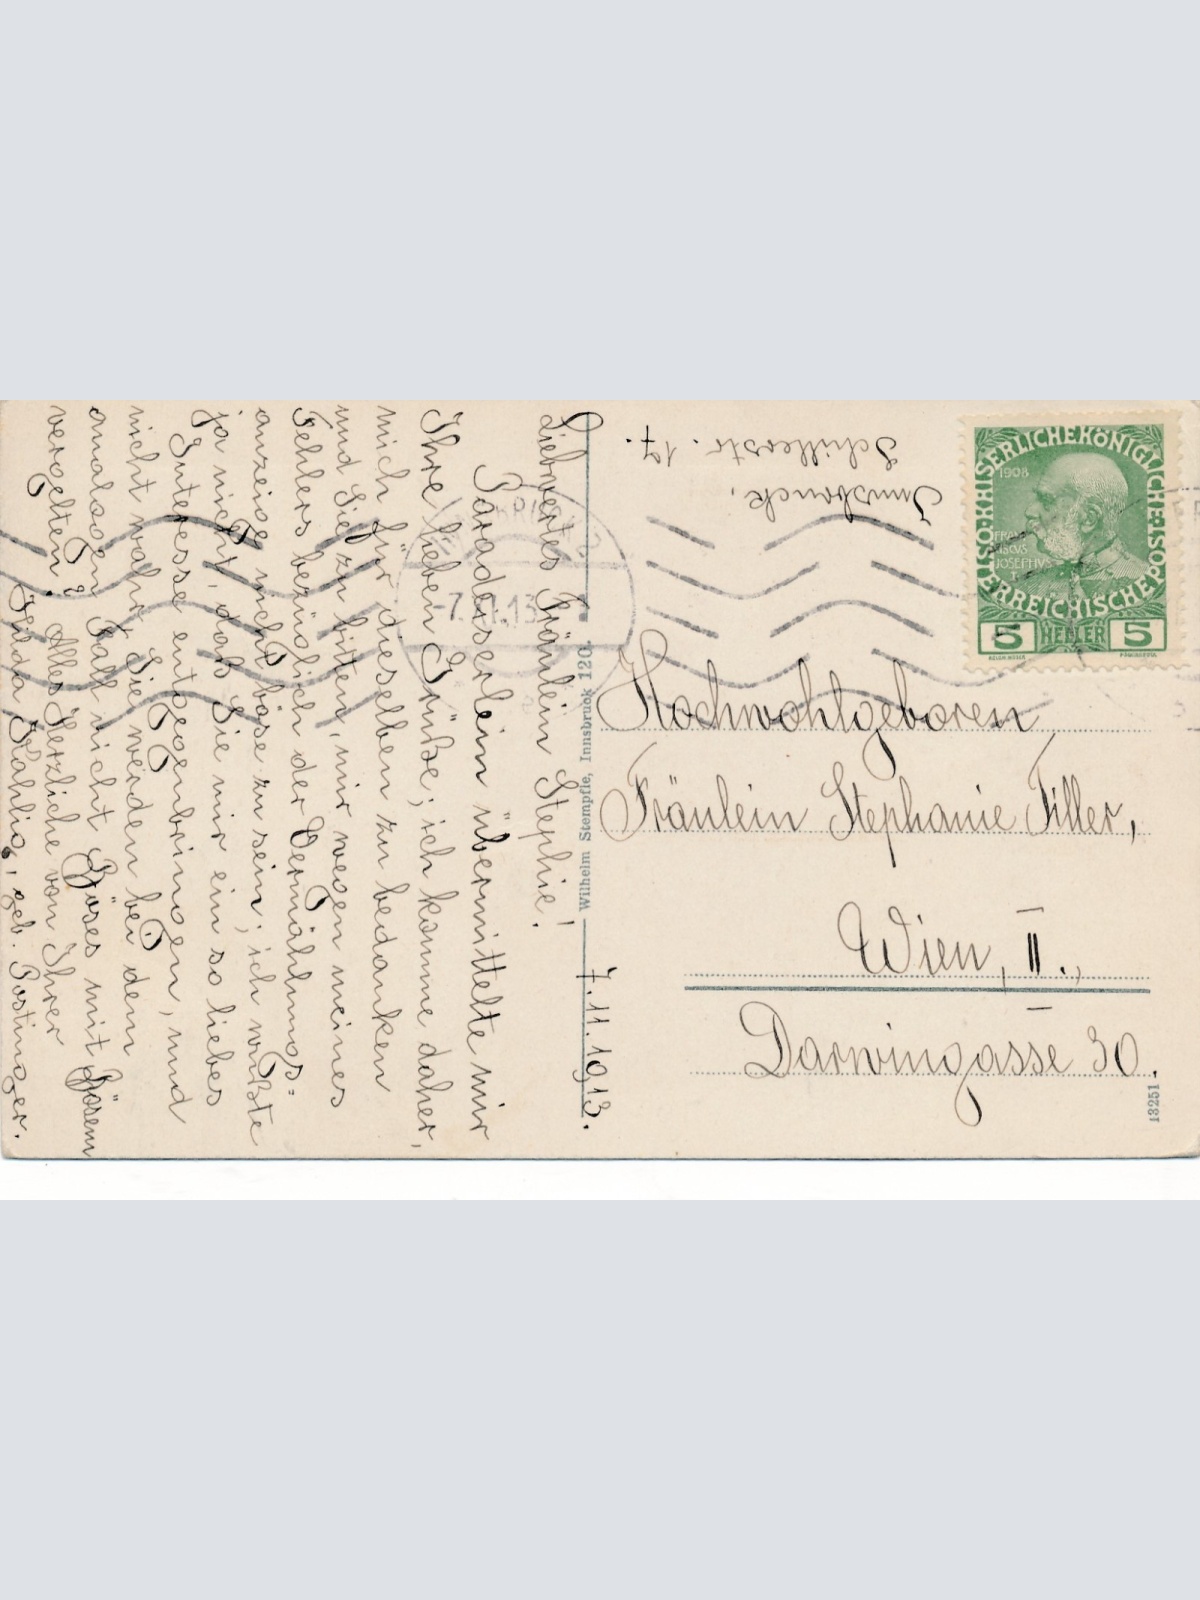 Liebwertes Fräulein Stephie!
Paradeiserlein übermittelte mir
Ihre lieben Grüße; ich komme daher,
mich für dieselben zu bedanken
und Sie zu bitten, mir wegen meines
Fehlers bezüglich der Vermählungs-
anzeige nicht böse zu sein; ich wußte
ja nicht, daß Sie mir ein so liebes
Interesse entgegenbringen, und
nicht wahr, Sie werden bei dem
analogen Fall nicht Böses mit Bösem
vergelten? Alles Herzliche von Ihrer
Hilda Kahlig, geb. Postinger.
7.11.1913.
Innsbruck,
Schillerstr. 17.
Wilhelm Stempfle, Innsbruck 120.
KAIS.KÖNIGLICHE
ÖSTERREICHISCHE POST
1908
FRAN
CISCVS
JOSEPHVS
I.
5 HELLER 5
-7.XI.13
Hochwohlgeboren
Fräulein Stephanie Filler,
Wien, II.,
Darwingasse 30.
13251